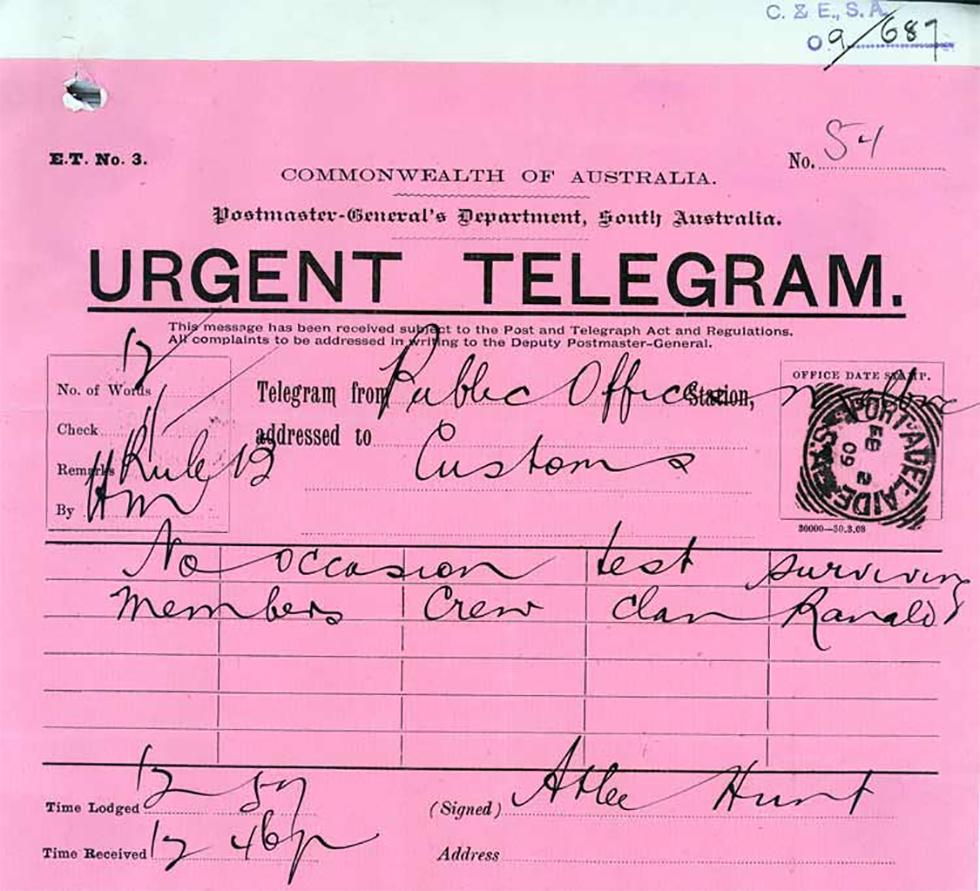 C. & E., S. A.
09/687
E.T. No. 3.
No. 54
COMMONWEALTH OF AUSTRALIA.
Postmaster-General's Department, South Australia.
URGENT TELEGRAM.
This message has been received subject to the Post and Telegraph Act and Regulations.
All complaints to be addressed in writing to the Deputy Postmaster-General.
No. of Words
Check
Remarks Rule 13
By Hm
Telegram from Public Offices Station,
addressed to
Customs
OFFICE DATE STAMP.
PORT-ADELAIDE
FE 2
09
30000—30.3.08
No occasion test surviving
Members Crew Clan Ranald
Time Lodged 12
(Signed) Atlee Hunt
Time Received 12 46p
Address